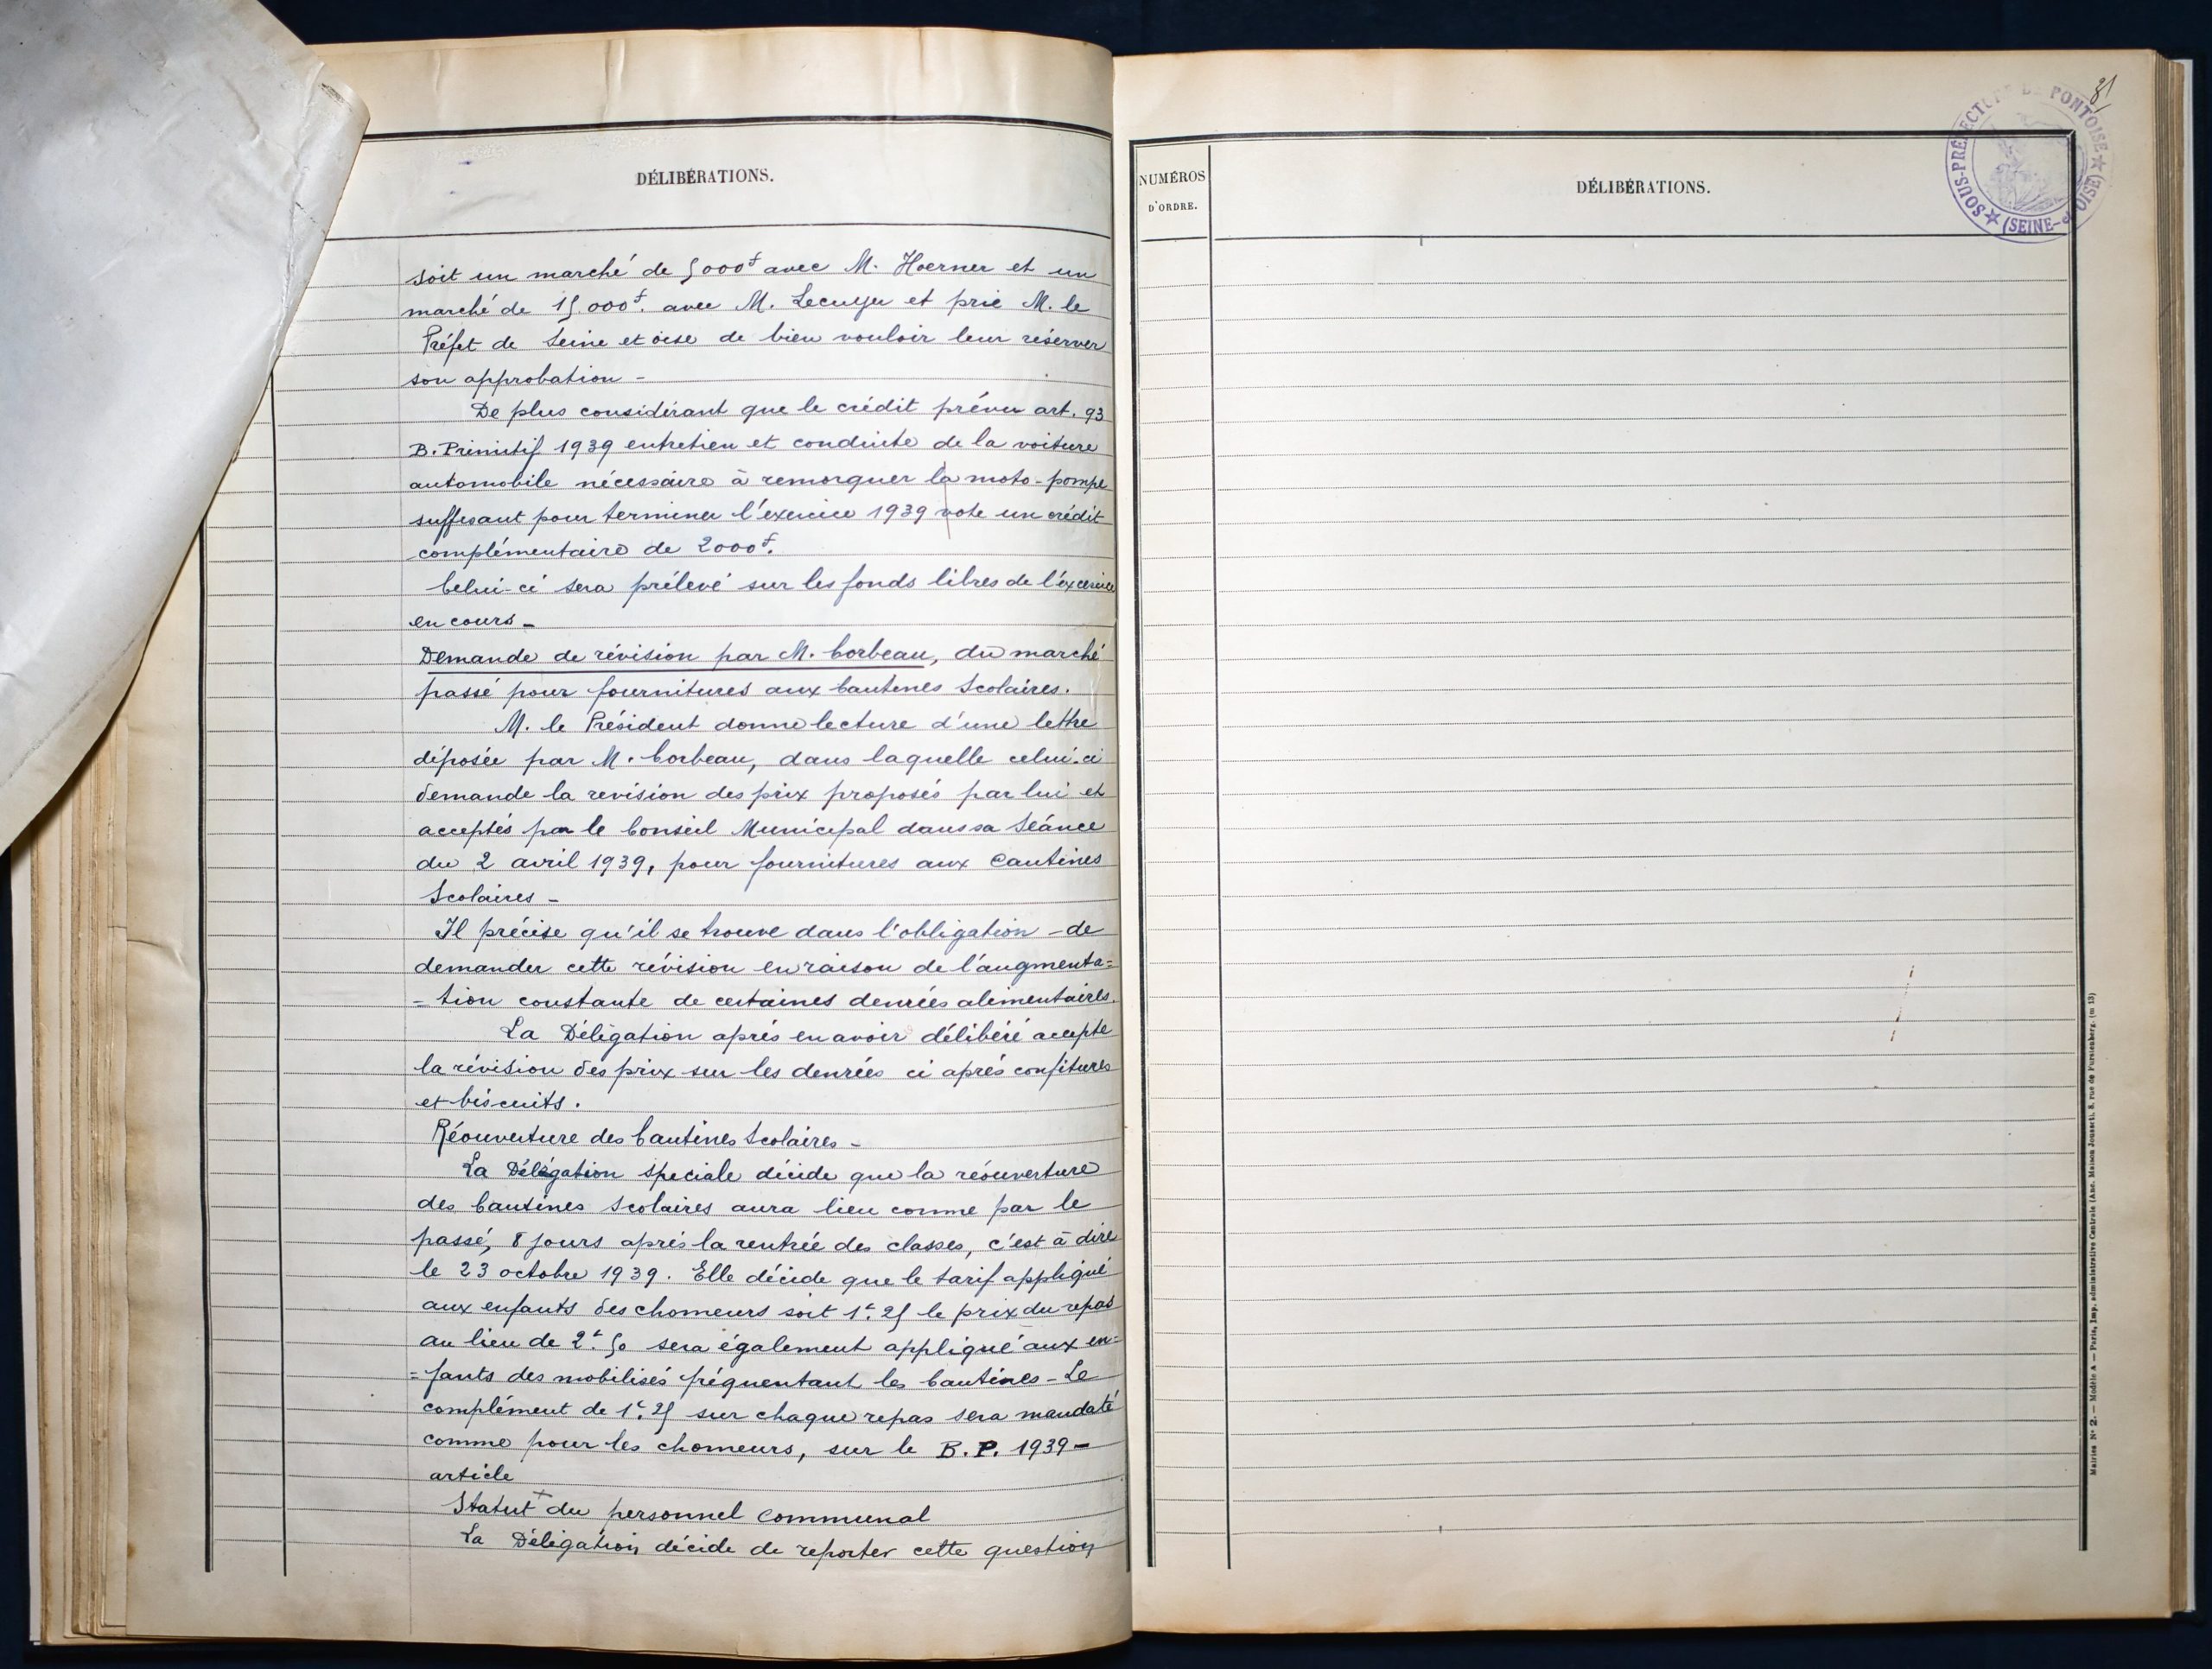 DÉLIBÉRATIONS.
soit un marché de 5000f avec M. Hoerner et un
marché de 15.000f. avec M. Lecuyer et prie M. le
Préfet de Seine et oise de bien vouloir leur réserver
son approbation -
De plus considérant que le crédit prévu art. 93
B. Primitif 1939 entretien et conduite de la voiture
automobile nécessaire à remorquer la moto-pompe
suffisant pour terminer l'exercice 1939 vote un crédit
complémentaire de 2000f.
Celui-ci sera prélevé sur les fonds libres de l'excercice
en cours -
Demande de révision par M. Corbeau, du marché
passé pour fournitures aux Cantines Scolaires.
M. le Président donne lecture d'une lettre
déposée par M. Corbeau, dans laquelle celui-ci
demande la revision des prix proposés par lui et
acceptés par le Conseil Municipal dans sa Séance
du 2 avril 1939, pour fournitures aux Cantines
Scolaires -
Il précise qu'il se trouve dans l'obligation - de
demander cette révision en raison de l'augmenta=
= tion constante de certaines denrées alimentaires.
La Délégation après en avoir délibéré accepte
la révision des prix sur les denrées ci après confitures
et biscuits.
Réouverture des Cantines Scolaires -
La Délégation spéciale décide que la réouverture
des Cantines Scolaires aura lieu comme par le
passé, 8 jours après la rentrée des classes, c'est à dire
le 23 octobre 1939. Elle décide que le tarif appliqué
aux enfants des chomeurs soit 1f.25 le prix du repas
au lieu de 2f.50 sera également appliqué aux en=
=fants des mobilisés fréquentant les Cantines - Le
complément de 1f.25 sur chaque repas sera mandaté
comme pour les chomeurs, sur le B.P. 1939 -
article
Statut du personnel communal
La Délégation décide de reporter cette question
NUMÉROS
D'ORDRE.
DÉLIBÉRATIONS.
81
SOUS-PRÉFECTURE DE PONTOISE
(SEINE-et-OISE)
Mairies N° 2. — Modèle A — Paris, Imp. administrative Centrale (Anc. Maison Jousset), 8, rue de Furstenberg. (m 13)